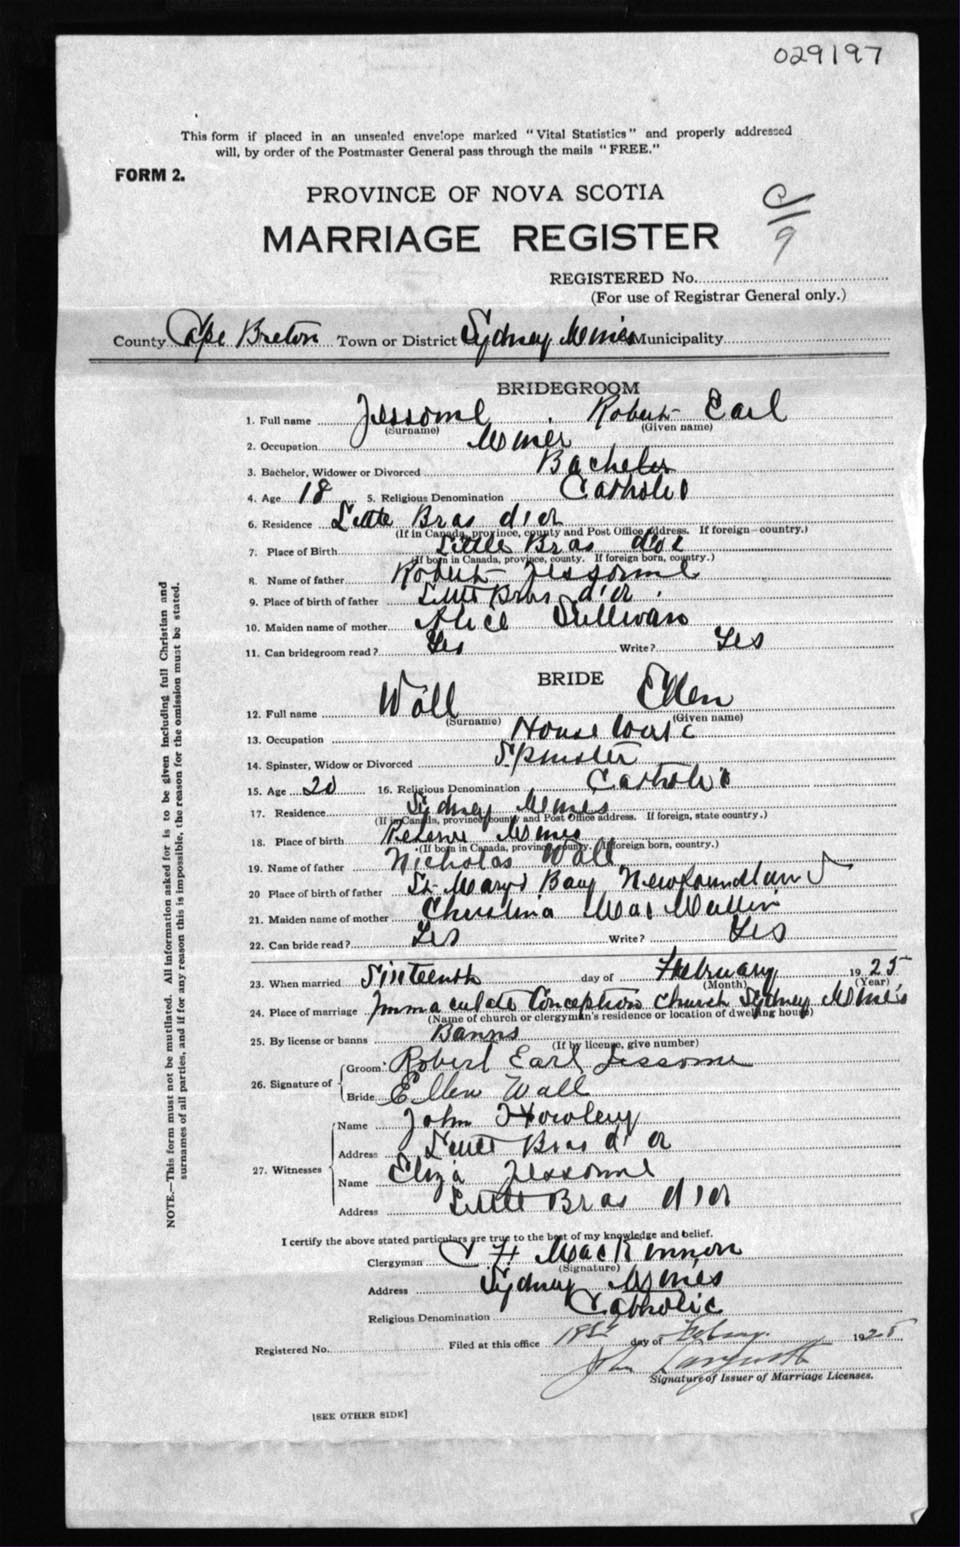 029197
This form if placed in an unsealed envelope marked "Vital Statistics" and properly addressed
will, by order of the Postmaster General pass through the mails "FREE."
FORM 2.
PROVINCE OF NOVA SCOTIA
MARRIAGE REGISTER
9
REGISTERED No.
(For use of Registrar General only.)
County Cape Breton Town or District Sydney Mines Municipality
BRIDEGROOM
1. Full name Jessome Robert Earl
(Surname) (Given name)
2. Occupation Miner
3. Bachelor, Widower or Divorced Bachelor
4. Age 18 5. Religious Denomination Catholic
6. Residence Little Bras d'or
(If in Canada, province, county and Post Office address. If foreign—country.)
7. Place of Birth Little Bras d'or
(If born in Canada, province, county. If foreign born, country.)
8. Name of father Robert Jessome
9. Place of birth of father Little Bras d'or
10. Maiden name of mother Alice Sullivan
11. Can bridegroom read? Yes Write? Yes
BRIDE
12. Full name Wall Ellen
(Surname) (Given name)
13. Occupation House work
14. Spinster, Widow or Divorced Spinster
15. Age 20 16. Religious Denomination Catholic
17. Residence Sydney Mines
(If in Canada, province county and Post Office address. If foreign, state country.)
18. Place of birth Reserve Mines
(If born in Canada, province, county. If foreign born, country.)
19. Name of father Nicholas Wall
20 Place of birth of father St Mary's Bay, Newfoundland
21. Maiden name of mother Christina MacMullin
22. Can bride read? Yes Write? Yes
23. When married Sixteenth day of February 1925
(Month) (Year)
24. Place of marriage Immaculate Conception Church Sydney Mines
(Name of church or clergyman's residence or location of dwelling house)
25. By license or banns Banns
(If by license, give number)
26. Signature of Groom Robert Earl Jessome
Bride Ellen Wall
27. Witnesses Name John Howley
Address Little Bras d'or
Name Eliza Jessome
Address Little Bras d'or
I certify the above stated particulars are true to the best of my knowledge and belief.
Clergyman C F MacKinnon
(Signature)
Address Sydney Mines
Religious Denomination Catholic
Registered No. Filed at this office 18th day of 1925
John
Signature of Issuer of Marriage Licenses.
[SEE OTHER SIDE]
NOTE.—This form must not be mutilated. All information asked for is to be given including full Christian and
surnames of all parties, and if for any reason this is impossible, the reason for the omission must be stated.